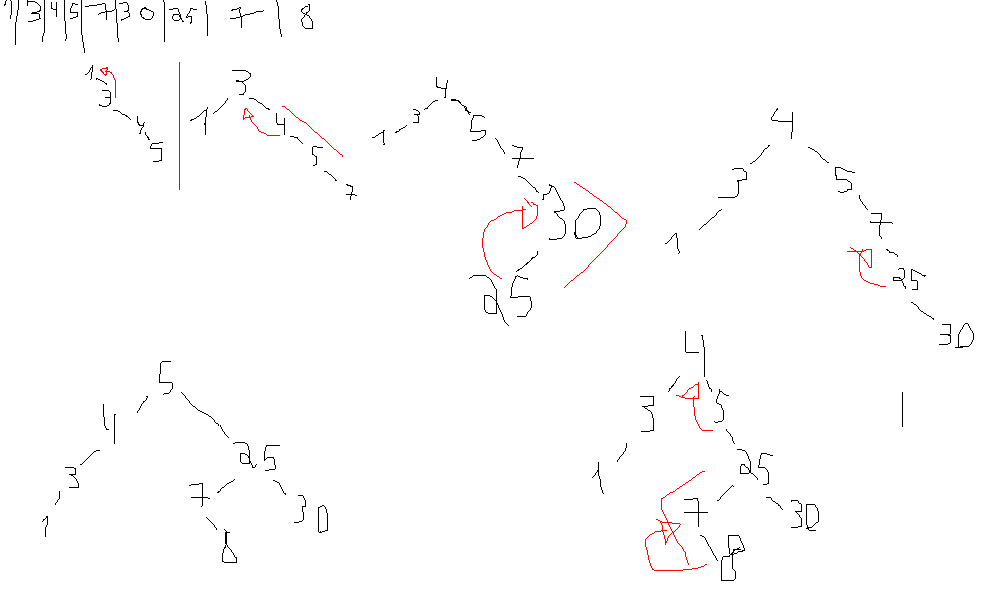 1|3|4|5|7|30|25|7|8
1
3
4
5
3
1 4
5
7
4
1 3 5
7
30
25
4
3 5
1 7
25
30
5
4 25
3 7 30
1 8
4
3 5
1 25
7 30
8